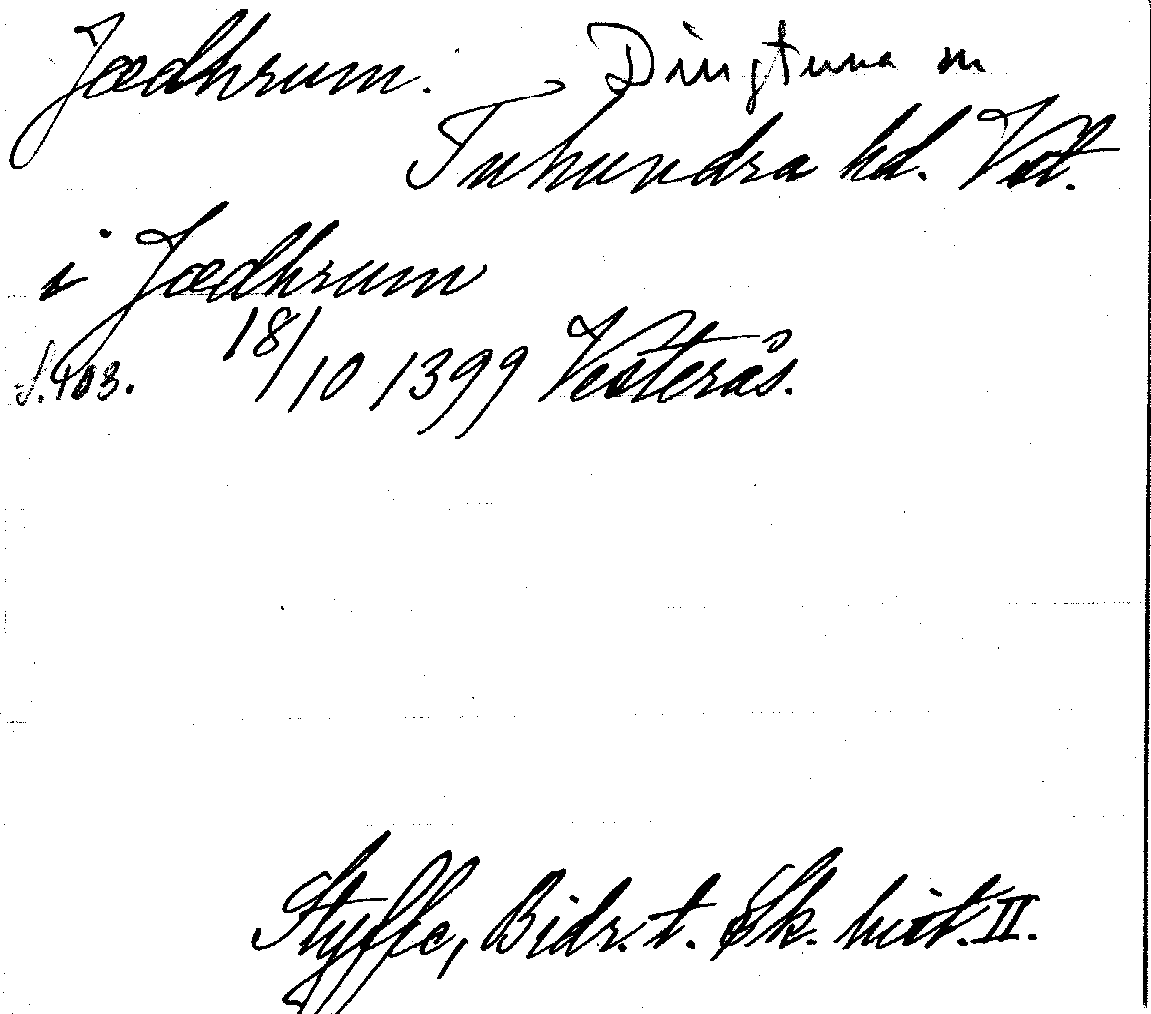 Jædhrum. Dingtuna sn
Tuhundra hd. Vstl.
i Jædhrum
s. 403. 18/10 1399 Vesterås.
Styffe, Bidr. t. Sk. hist. II.